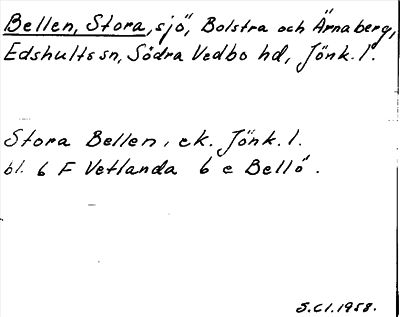 Bellen, Stora, sjö, Bolstra och Ärnaberg,
Edshults sn, Södra Vedbo hd, Jönk. l.
Stora Bellen, ek. Jönk. l.
bl. 6 F Vetlanda 6 e Bellö.
S.Cl. 1958.